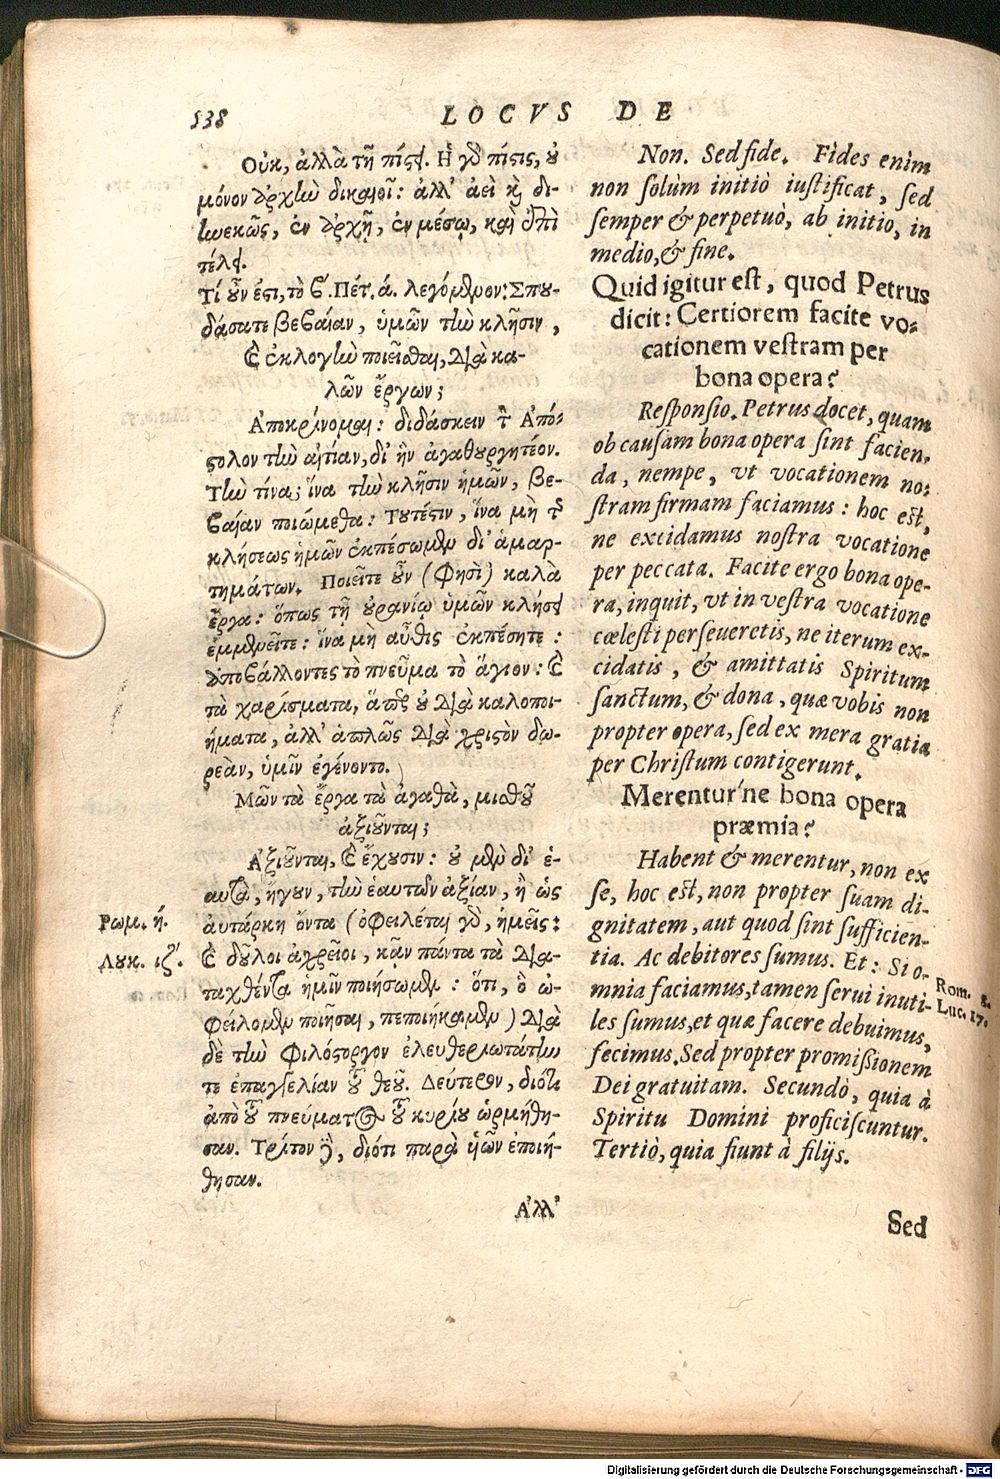 538 LOCVS DE
Οὐκ, ἀλλὰ τῇ πίστει. Ἡ γὰρ πίστις, οὐ
μόνον ἀρχὴν δικαιοῖ: ἀλλ' ἀεὶ καὶ δι-
ηνεκῶς, ἐν ἀρχῇ, ἐν μέσῳ, καὶ ἐπὶ
τέλει.
Τί οὖν ἐστι, τὸ β. Πέτ. ά. λεγόμενον: Σπου-
δάσατε βεβαίαν, ὑμῶν τὴν κλῆσιν,
καὶ ἐκλογὴν ποιεῖσθαι, διὰ κα-
λῶν ἔργων;
Ἀποκρίνομαι: διδάσκειν τὸν Ἀπό-
στολον τὴν αἰτίαν, δι' ἣν ἀγαθουργητέον.
Τὴν τίνα; ἵνα τὴν κλῆσιν ἡμῶν, βε-
βαίαν ποιώμεθα: Τουτέστιν, ἵνα μὴ τῆς
κλήσεως ἡμῶν ἐκπέσωμεν δι' ἁμαρ-
τημάτων. Ποιεῖτε οὖν (φησὶ) καλὰ
ἔργα: ὅπως τῇ οὐρανίῳ ὑμῶν κλήσει
ἐμμενεῖτε: ἵνα μὴ αὖθις ἐκπέσητε:
ἀποβάλλοντες τὸ πνεῦμα τὸ ἅγιον: καὶ
τὰ χαρίσματα, ἅπερ οὐ διὰ καλοποι-
ήματα, ἀλλ' ἁπλῶς διὰ χριστὸν δω-
ρεὰν, ὑμῖν ἐγένοντο.
Μῶν τὰ ἔργα τὰ ἀγαθὰ, μισθοῦ
ἀξιοῦνται;
Ἀξιοῦνται, καὶ ἔχουσιν: οὐ μὲν δι' ἑ-
αυτὰ, ἤγουν, τὴν ἑαυτῶν ἀξίαν, ἢ ὡς
αὐτάρκη ὄντα (ὀφειλέται γὰρ, ἡμεῖς:
καὶ δοῦλοι ἀχρεῖοι, κἂν πάντα τὰ δια-
ταχθέντα ἡμῖν ποιήσωμεν: ὅτι, ὃ ὠ-
φείλομεν ποιῆσαι, πεποιήκαμεν) διὰ
δὲ τὴν φιλόστοργον ἐλευθεριωτάτην
τε ἐπαγγελίαν τοῦ θεοῦ. Δεύτερον, διότι
ἀπὸ τοῦ πνεύματος τοῦ κυρίου ὡρμήθη-
σαν. Τρίτον δὲ, διότι παρὰ υἱῶν ἐποιή-
θησαν.
Ἀλλ'
Ρωμ. ή.
Λουκ. ιζ.
Non. Sed fide. Fides enim
non solùm initiò iustificat, sed
semper & perpetuò, ab initio, in
medio, & fine.
Quid igitur est, quod Petrus
dicit: Certiorem facite vo-
cationem vestram per
bona opera?
Responsio. Petrus docet, quam
ob causam bona opera sint facien-
da, nempe, vt vocationem no-
stram firmam faciamus: hoc est,
ne excidamus nostra vocatione
per peccata. Facite ergo bona ope-
ra, inquit, vt in vestra vocatione
cœlesti perseueretis, ne iterum ex-
cidatis, & amittatis Spiritum
sanctum, & dona, quæ vobis non
propter opera, sed ex mera gratia
per Christum contigerunt.
Merentur'ne bona opera
præmia?
Habent & merentur, non ex
se, hoc est, non propter suam di-
gnitatem, aut quod sint sufficien-
tia. Ac debitores sumus. Et: Si o-
mnia faciamus, tamen serui inuti-
les sumus, et quæ facere debuimus,
fecimus. Sed propter promißionem
Dei gratuitam. Secundò, quia à
Spiritu Domini proficiscuntur.
Tertiò, quia fiunt à filijs.
Sed
Rom. 8.
Luc. 17.
Digitalisierung gefördert durch die Deutsche Forschungsgemeinschaft - DFG